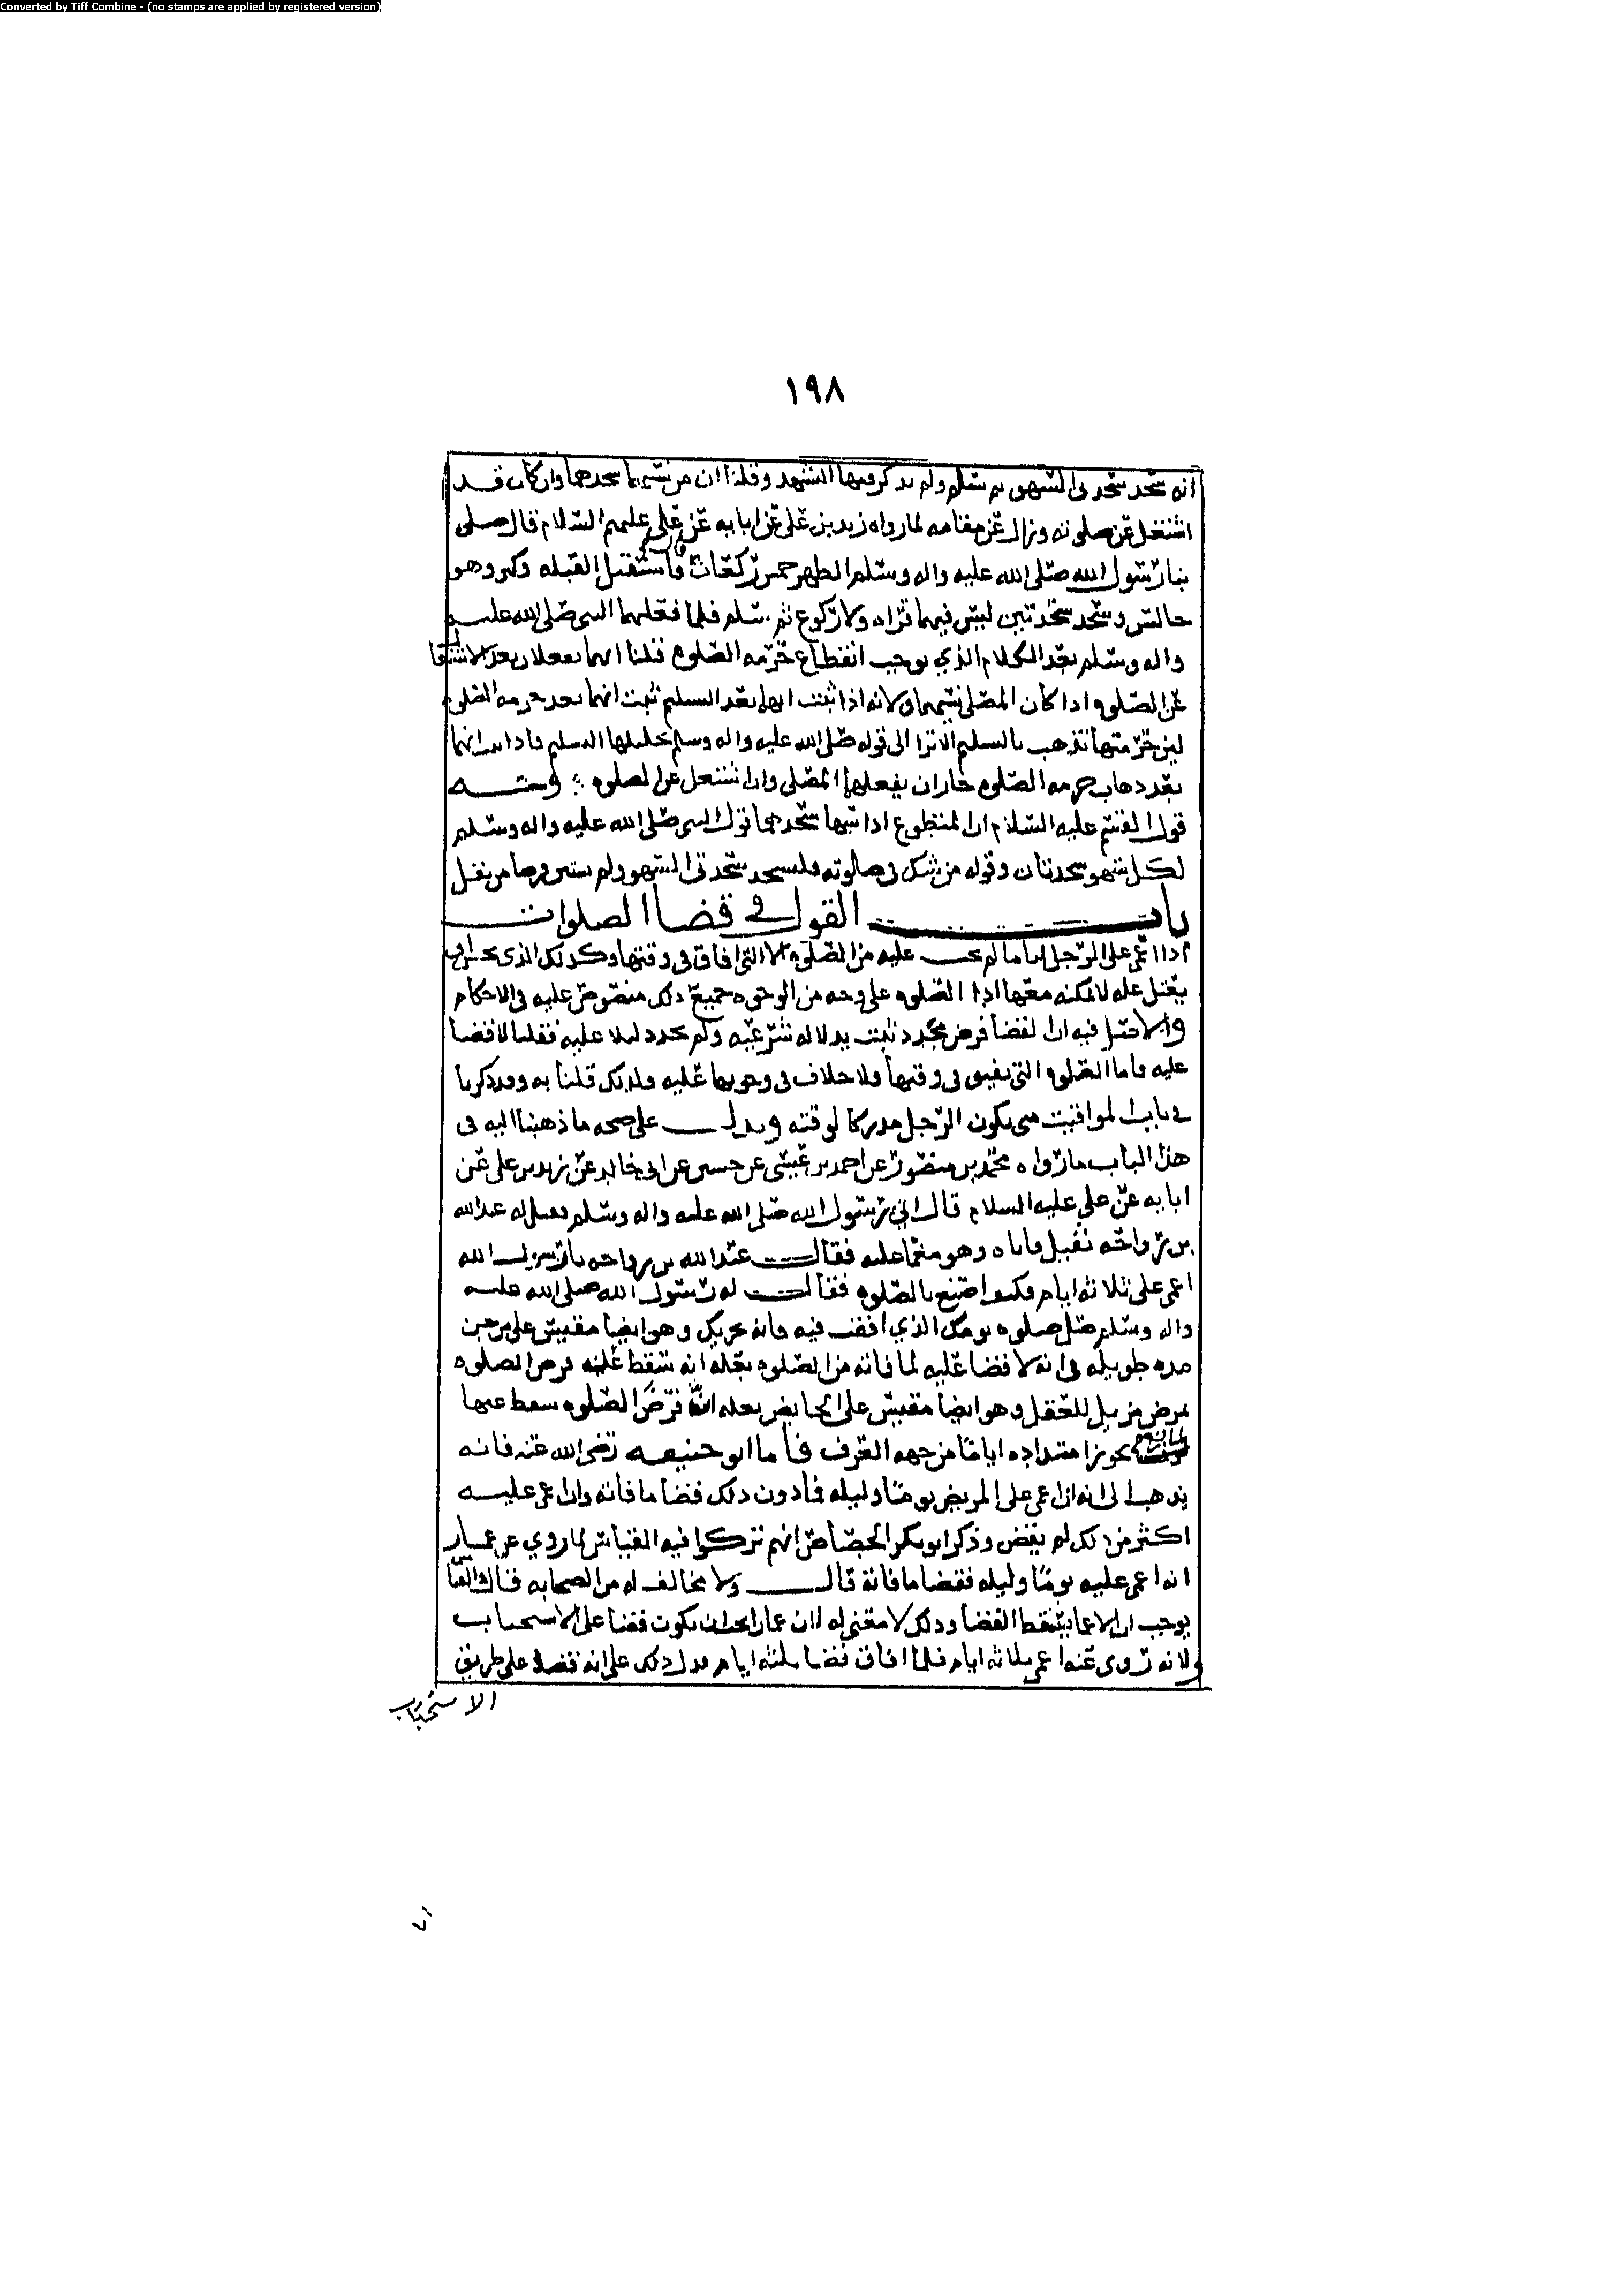 Converted by Tiff Combine - (no stamps are applied by registered version)
١٩٨
انه سجد سجدتي السهو ثم سلم ولم يذكر فيها التشهد وقلنا ان من نسيهما سجدهما وان كان قد
اشتغل عن صلوته وزال عن مقامه لما رواه زيد بن علي عن ابايه عن علي عليهم السلام قال صلى
بنا رسول الله صلى الله عليه واله وسلم الظهر خمس ركعات فاستقبل القبله وكبر وهو
جالس وسجد سجدتين ليس فيهما قراه ولا ركوع ثم سلم فلما فعلهما النبي صلى الله عليه
واله وسلم بعد الكلام الذي يوجب انقطاع حرمه الصلوه قلنا انهما يفعلان بعد الاشتغا
عن الصلوه اذا كان المصلي نسيهما ولانه اذا ثبت انها بعد التسليم ثبت انهما بعد حرمه الصلوه
لين حرمتها تذهب بالتسليم الا ترا الى قوله صلى الله عليه واله وسلم تحليلها التسليم فاذا انهما
بعد ذهاب حرمه الصلوه جاز ان يفعلها المصلي وان اشتغل عن الصلوه
قول القسم عليه السلام ان المتطوع اذا سها سجدهما لقول النبي صلى الله عليه واله وسلم
لكل سهو سجدتان وقوله من شك في صلوته فليسجد سجدتي السهو ولم يستثن فرضا من نفل
باب القول في قضا الصلوات
اذا اغمي على الرجل اياما لم يجب عليه من الصلوه الا التي افاق في وقتها وكذلك الذي
بعلة لا يمكنه معها اداا الصلوه على وجه من الوجوه جميع ذلك منصوص عليه في الاحكام
والاصل فيه ان القضا فرض مجدد ثبت بدلاله شرعيه ولم نجد دليلا عليه فقلنا لا قضا
عليه فاما الصلوه التي يفيق في وقتها فلا خلاف في وجوبها عليه ولذلك قلنا به وقد ذكرنا
في باب المواقيت متى يكون الرجل مدركا لوقته ويدل على صحه ما ذهبنا اليه في
هذا الباب ما رواه محمد بن منصور عن احمد بن عيسى عن حسين عن ابي خالد عن زيد بن علي عن
ابايه عن علي عليه السلام قال اتي رسول الله صلى الله عليه واله وسلم فقيل له عبدالله
بن رواحه فاتاه وهو مغما عليه فقال عبد الله بن رواحه يا رسول الله
اغمي علي ثلاثه ايام فكيف اصنع بالصلوه فقال له رسول الله صلى الله عليه
واله وسلم صل صلوه يومك الذي افقت فيه فانه يجزيك وهو ايضا مقيس على من جن
مده طويله في انه لا قضا عليه لما فاته من الصلوه بعله انه سقط عنه فرض الصلوه
لمرض مزيل للعقل وهو ايضا مقيس على الحايض بعله ان فرض الصلوه سقط عنها
يجوز امتداده اياما من جهه العرف فأما ابو حنيفه رضي الله عنه فانه
يذهب الى انه اذا اغمي على المريض يوما وليله فما دون ذلك قضا ما فاته وان اغمي عليه
اكثر من ذلك لم يقض وذكر ابو بكر الجصاص انهم تركوا فيه القياس لما روي عن عمار
انه اغمي عليه يوما وليله فقضا ما فاته قال ولا مخالف له من الصحابه فقال والقياس
يوجب ان الاغما يسقط القضا وذلك لا معنى له لان عمار يجوز ان يكون قضا على الاستحباب
ولانه روي عنه اغمي ثلاثه ايام فلما افاق قضا ثلثه ايام فدل ذلك على انه قضاه على طريق
الاستحباب